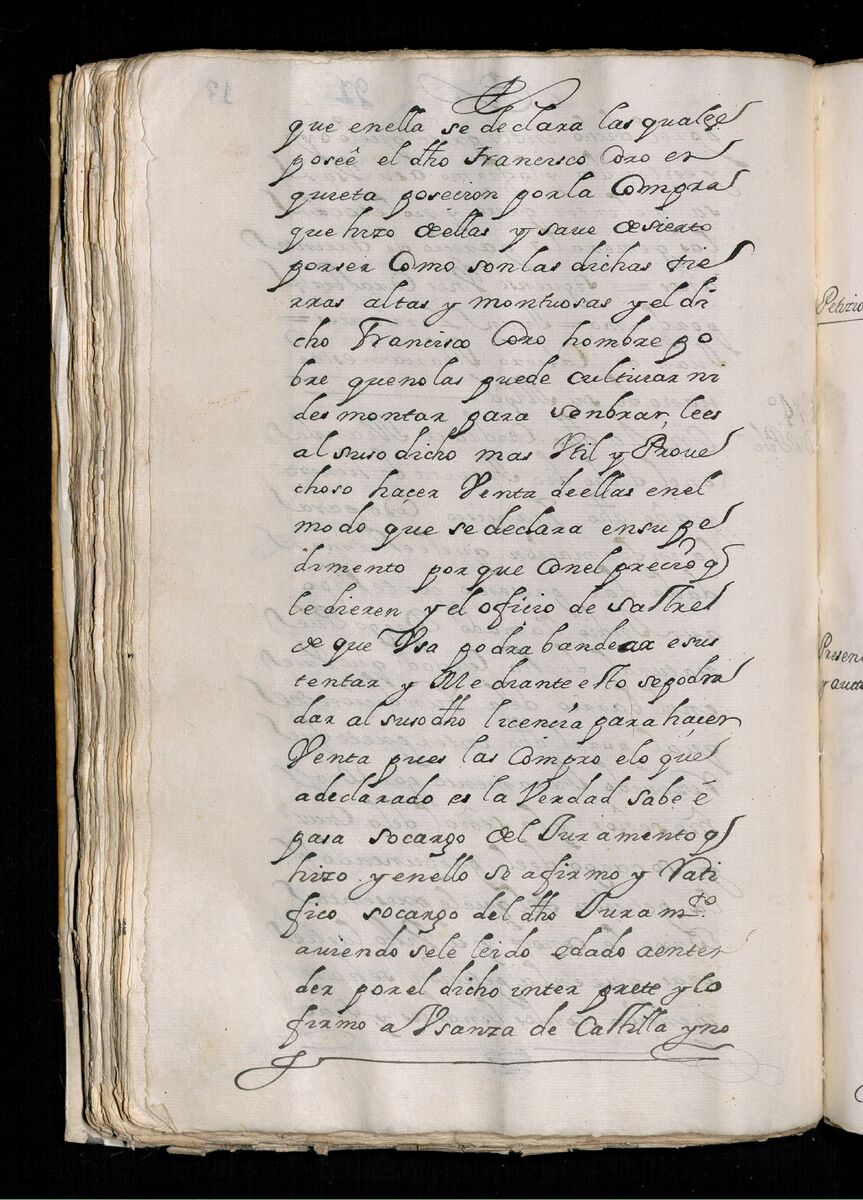 que enella se declara las quales
poseé el dho Francisco Coro en
quieta posecion por la Compra
que hizo de ellas y save de sierto
por ser Como son las dichas tie
rras altas y montuosas y el di
cho Francisco Coro hombre po
bre que no las puede cultivar ni
desmontar para senbrar, lees
al suso dicho mas Vtil y Prove
choso hacer Venta de ellas en el
modo que se declara en su pe
dimento por que Con el precio q
le dieren y el oficio de sastre
de que Vsa podra bandear e sus
tentar y Mediante esto se podra
dar al suso dho licencia para hacer
Venta pues las Compro e lo que
a declarado es la Verdad sabe é
pasa so cargo del Juramento q
hizo y en ello se afirmo y Rati
fico so cargo del dho Juramto.
aviendo sele leido e dado a enten
der por el dicho interprete y lo
firmo a Vsanza de Castilla y no
Petizio
Presen
y auto